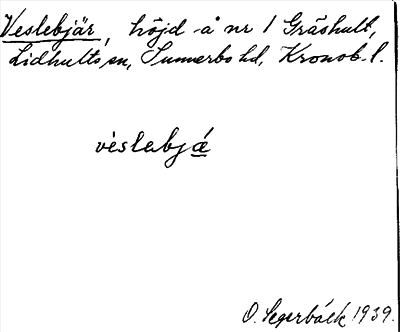 Veslebjär, höjd å nr 1 Gråshult,
Lidhults sn, Sunnerbo hd, Kronob. l.
vèslabjá̲
O. Segerbäck 1939.